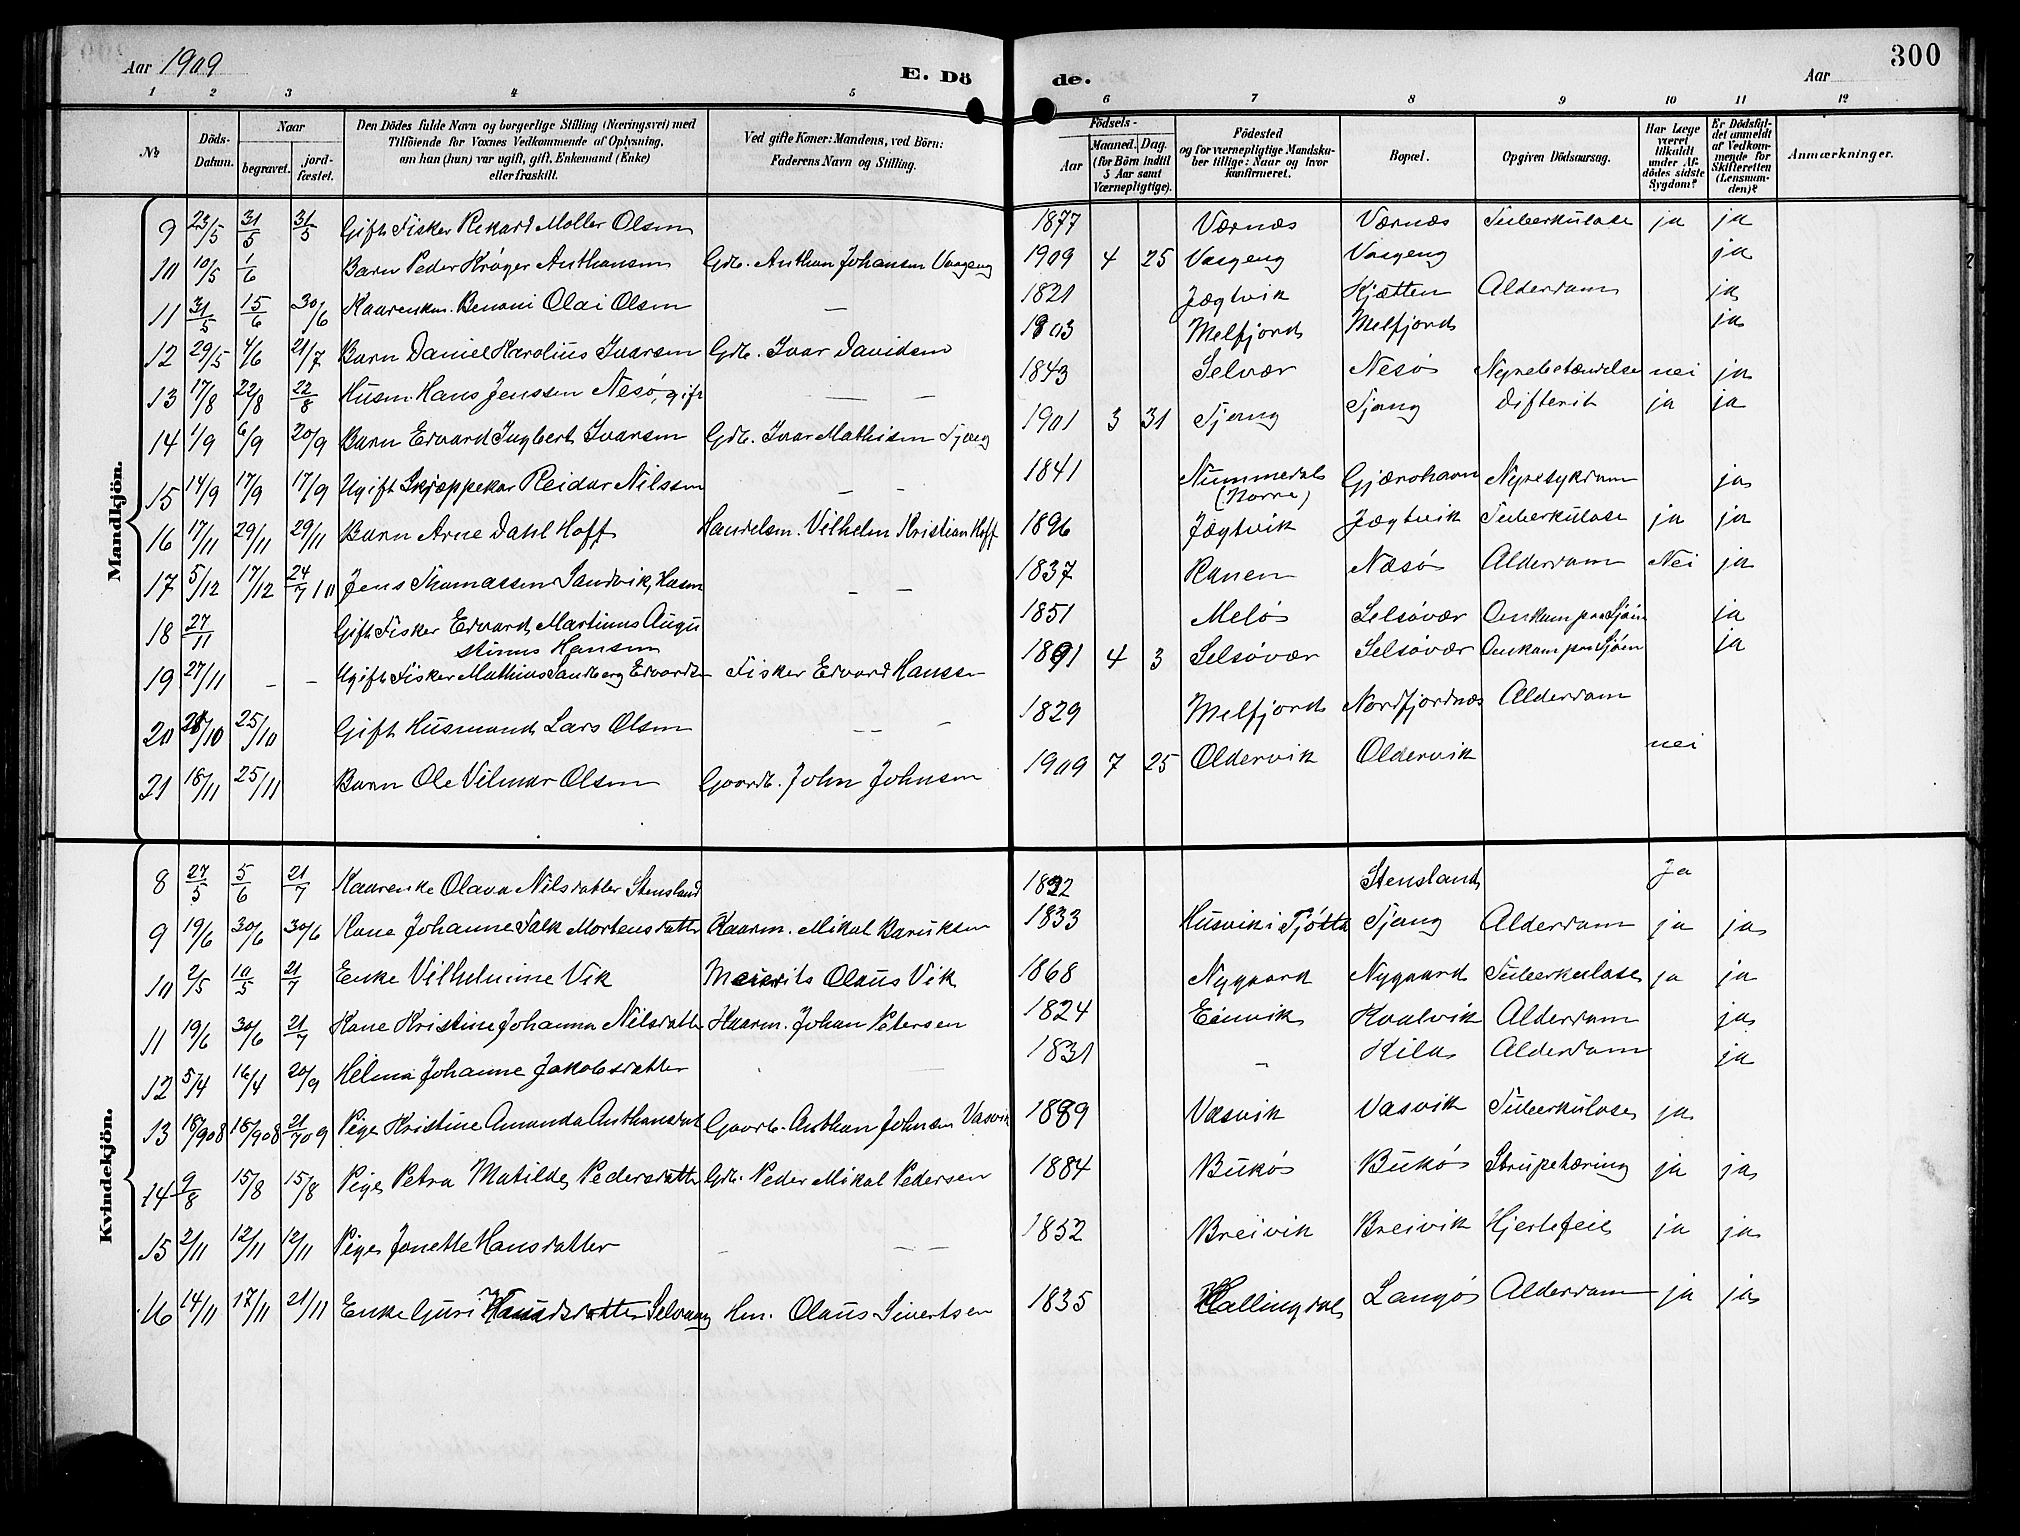 Aar 1909
E. Dö de.
Aar
300
1 2 3 4 5 6 7 8 9 10 11 12
No
Döds-Datum.
Naar
begravet.
jord-fæstet.
Den Dödes fulde Navn og borgerlige Stilling (Næringsvei) med
Tilföiende for Voxnes Vedkommende af Oplysning,
om han (hun) var ugift, gift, Enkemand (Enke)
eller fraskilt.
Ved gifte Koner: Mandens, ved Börn:
Faderens Navn og Stilling.
Födsels-
Aar
Maaned. Dag.
(for Börn indtil
5 Aar samt
Værnepligtige).
Födested
og for værnepligtige Mandska-
ber tillige: Naar og hvor
konfirmeret.
Bopæl.
Opgiven Dödsaarsag.
Har Læge
været
tilkaldt
under Af-
dödes sidste
Sygdom?
Er Dödsfal-
det anmeldt
af Vedkom-
mende for
Skifteretten
(Lensman-
den)?
Anmærkninger.
Mandkjön.
9 23/5 31/5 31/5 Gift Fisker Rikard Moller Olsen 1877 Værnæs Værnæs Tuberkulose ja ja
10 10/5 1/6 Barn Peder Krøger Anthonsen Gdb. Anthon Johansen Vaageng 1909 4 25 Vasgeng Vasgeng ja
11 31/5 15/6 30/6 Kaarenkm. Benoni Olai Olsen — 1821 Jægtvik Kjætten Alderdom ja
12 29/5 4/6 21/7 Barn Daniel Karolius Ivarsen Gdb. Ivar Davidsen 1903 Melfjord Melfjord ja
13 17/8 22/8 22/8 Husm. Hans Jenssen Nesø, gift — — 1843 Selvær Nesø Nyrebetændelse nei ja
14 1/9 6/9 20/9 Barn Edvard Ingbert Ivarsen Gdb. Ivar Mathisen Tjong 1901 3 31 Tjong Tjong Difterit ja ja
15 14/9 17/9 17/9 Ugift Skjæppekar Reidar Nilssen — — 1841 Nummedal (Norra) Gjærøhavn Nyresykdom ja
16 17/11 29/11 29/11 Barn Arne Dahl Hoff Handelsm. Vilhelm Kristian Hoff 1896 Jægtvik Jægtvik Tuberkulose ja ja
17 5/12 17/12 24/7 10 Jens Thomassen Sandvik, Husm — — 1837 Ranen Næsø Alderdom Nei ja
18 27/11 Gift Fisker Edvard Martinus Augu
stinus Hansen 1851 Melø Selsøvær Omkom paa Sjøen ja
19 27/11 – – Ugift Fisker Mathias Sandberg Edvards Fisker Edvard Hanssen 1891 4 3 Selsøvær Selsøvær Omkom paa Sjøen ja
20 21/10 25/10 Gift Husmand Lars Olsen — — 1829 Melfjord Nordfjordnæs Alderdom
21 18/11 25/11 Barn Ole Vilmar Olsen Gaardb. John Johnsen 1909 7 25 Oldervik Oldervik nei
Kvindekjön.
8 27/5 5/6 21/7 Kaarenke Olava Nilsdatter Stensland 1832 Stensland Ja
9 19/6 30/6 30/6 Kone Johanne Falk Mortensdatter Kaarm. Mikal Baruksen 1833 Husvik i Tjøtta Tjong Alderdom ja ja
10 2/5 10/5 21/7 Enke Vilhelmine Vik Meierits Olaus Vik 1868 Nygaard Nygaard Tuberkulose ja ja
11 19/6 30/6 21/7 Kone Kristine Johanna Nilsdatter Kaarm. Johan Petersen 1824 Einvik Kvalvik Alderdom ja
12 5/4 16/4 20/9 Helma Johanne Jakobsdatter 1831 – Kila Alderdom ja
13 18/908 18/908 21/7 09 Pige Kristine Amanda Anthonsdat Gaardb. Anthon Johnsen Vasvik 1889 Vasvik Vasvik Tuberkulose ja
14 9/8 15/8 15/8 Pige Petra Matilde Pedersdatter Gdb. Peder Mikal Pedersen 1884 Bukø Bukø Strupetæring ja ja
15 2/11 12/11 12/11 Pige Jonette Hansdatter – – – 1852 Breivik Breivik Hjertefeil ja ja
16 14/11 17/11 21/11 Enke Guri Knudsdatter Selvaag Hm. Olaus Sivertsen 1835 Hallingdal Langø Alderdom ja ja